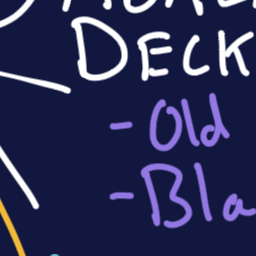 DECK
- Old
- Bla